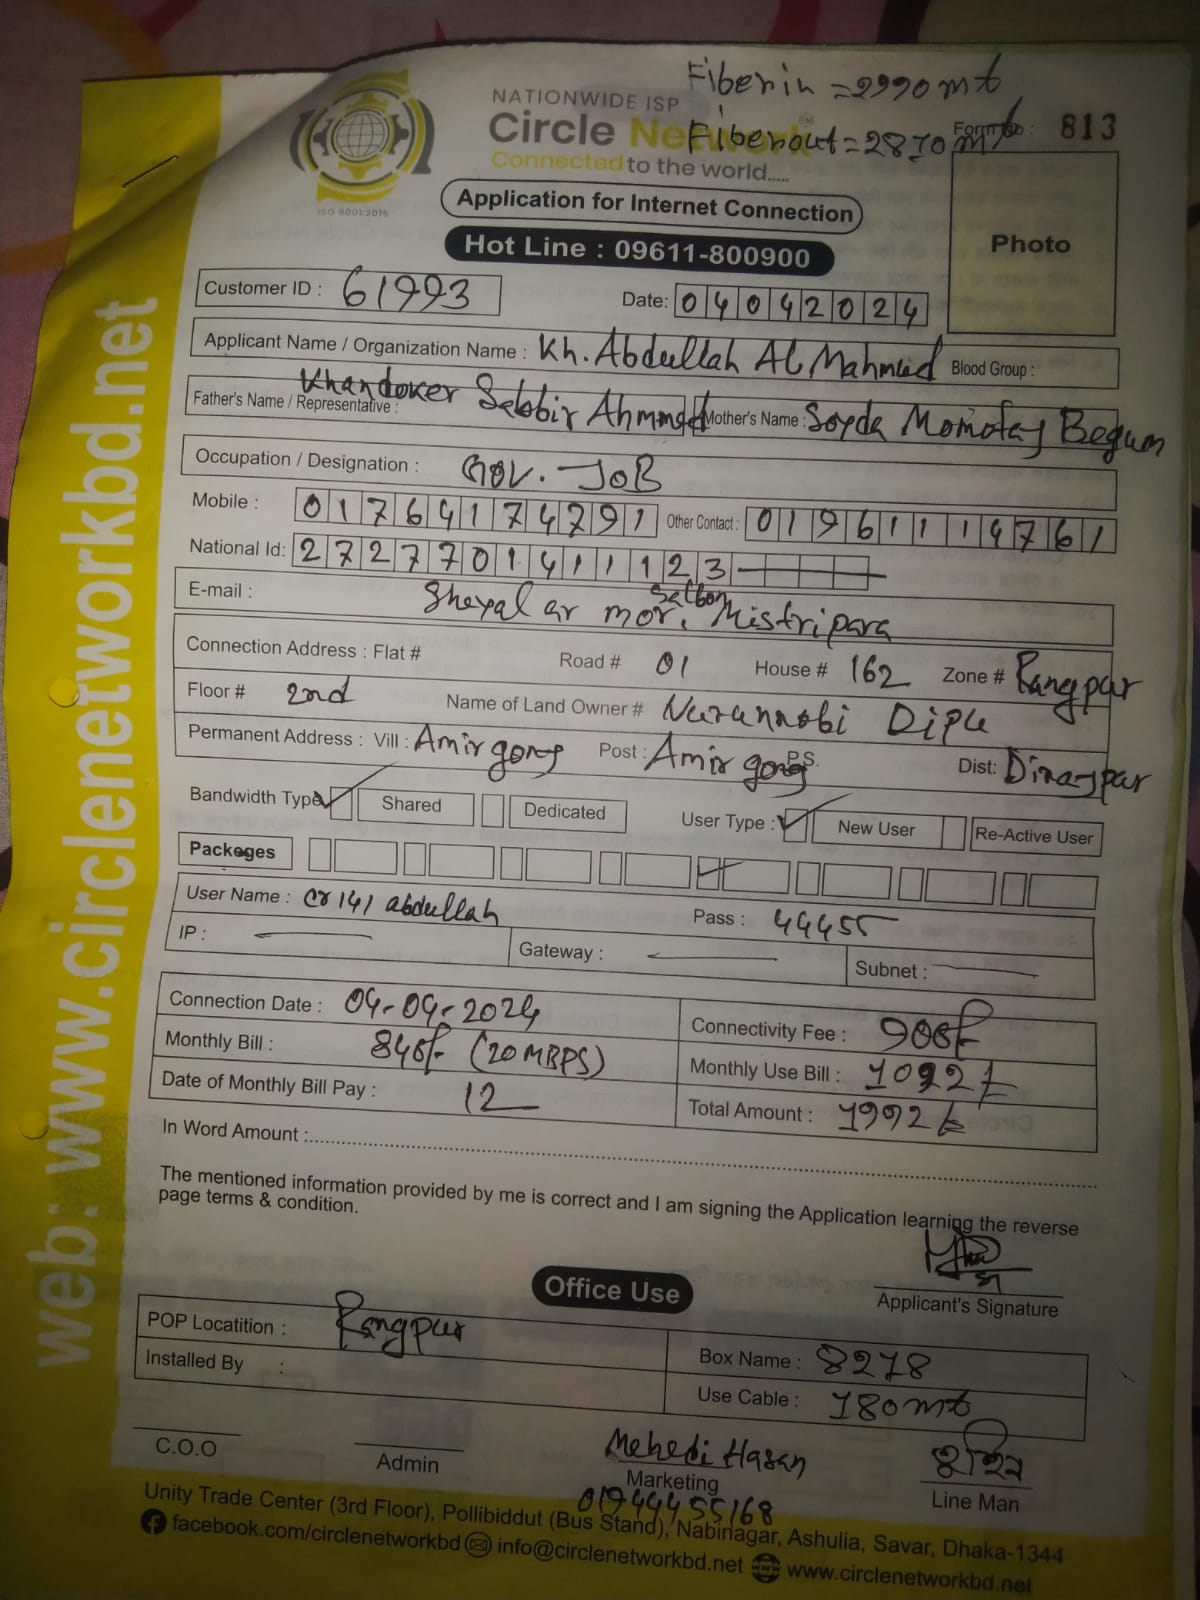 Fiber in = 2990 mt
NATIONWIDE ISP
Circle Network
Fiber out = 2870 mt
Form No : 813
Connected to the world.....
ISO 9001:2015
Application for Internet Connection
Photo
Hot Line : 09611-800900
Customer ID : 61993 Date: 04042024
Applicant Name / Organization Name : Kh. Abdullah Al Mahmud Blood Group :
Father's Name / Representative : Khandoker Sabbir Ahmmed Mother's Name : Soyda Momotaj Begum
Occupation / Designation : Gov. JoB
Mobile : 01764174291 Other Contact : 01961114761
National Id: 2727701411123
E-mail : Sheyal ar mor, Salbon Mistripara
Connection Address : Flat # Road # 01 House # 162 Zone # Rangpur
Floor # 2nd Name of Land Owner # Nurunnobi Diplu
Permanent Address : Vill : Amirgong Post : Amirgong P.S. Dist: Dinajpur
Bandwidth Type Shared Dedicated User Type : New User Re-Active User
Packeges
User Name : cr141abdullah Pass : 44455
IP : Gateway : Subnet :
Connection Date : 04-04-2024 Connectivity Fee : 900/-
Monthly Bill : 840/- (20MBPS) Monthly Use Bill : 1092/-
Date of Monthly Bill Pay : 12 Total Amount : 1992/-
In Word Amount :
The mentioned information provided by me is correct and I am signing the Application learning the reverse
page terms & condition.
Applicant's Signature
Office Use
POP Locatition : Rangpur Box Name : 8278
Installed By : Use Cable : 180 mt
C.O.O Admin Mehedi Hasan Marketing Line Man
01944455168
Unity Trade Center (3rd Floor), Pollibiddut (Bus Stand), Nabinagar, Ashulia, Savar, Dhaka-1344
facebook.com/circlenetworkbd info@circlenetworkbd.net www.circlenetworkbd.net
web: www.circlenetworkbd.net